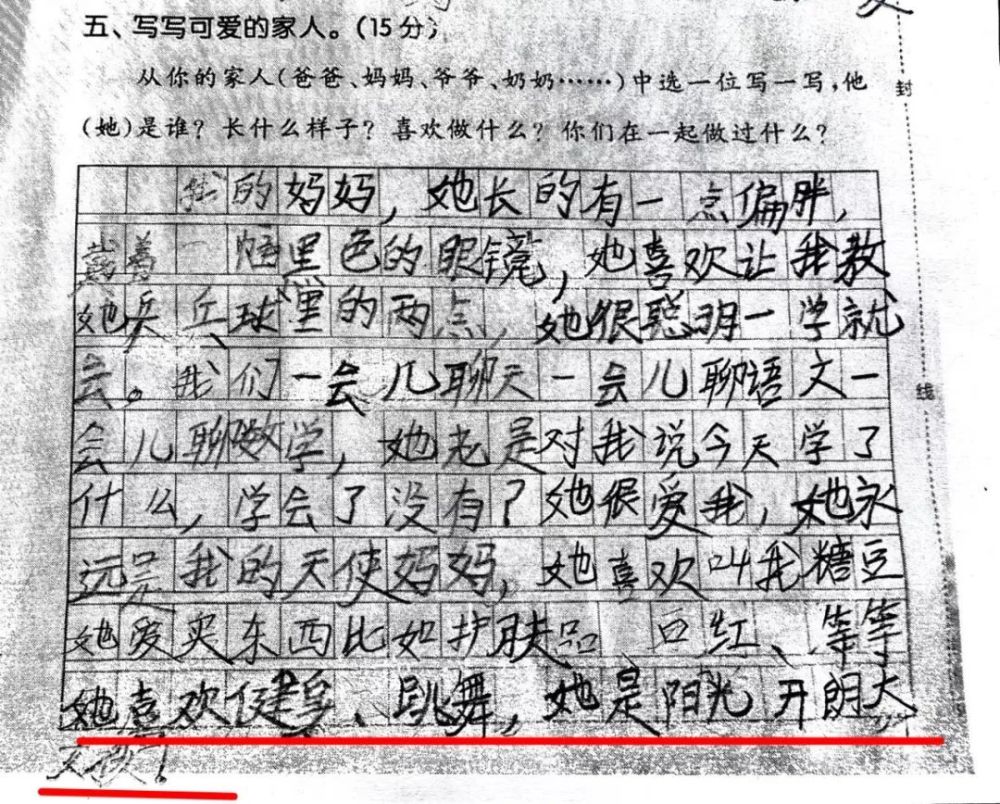 五、写写可爱的家人。(15分)
从你的家人(爸爸、妈妈、爷爷、奶奶……)中选一位写一写,他
(她)是谁?长什么样子?喜欢做什么?你们在一起做过什么?
封
线
我的妈妈,她长的有一点偏胖,
戴着一幅黑色的眼镜,她喜欢让我教
她兵乓球黑的两点,她很聪明一学就
会。我们一会儿聊天一会儿聊语文一
会儿聊数学,她老是对我说今天学了
什么,学会了没有?她很爱我,她永
远是我的天使妈妈,她喜欢叫我糖豆
她爱买东西比如护肤品、口红、等等
她喜欢健身、跳舞,她是阳光开朗大